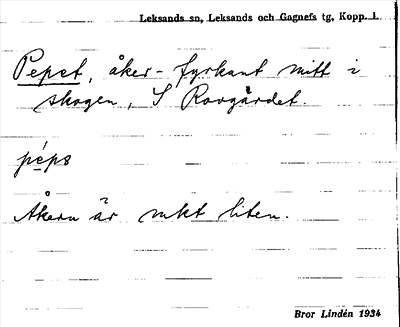 Leksands sn, Leksands och Gagnefs tg, Kopp. l.
Pepet, åker- fyrkant mitt i
skogen, S Rovgårdet.
péps
Åkern är mkt liten.
Bror Lindén 1934